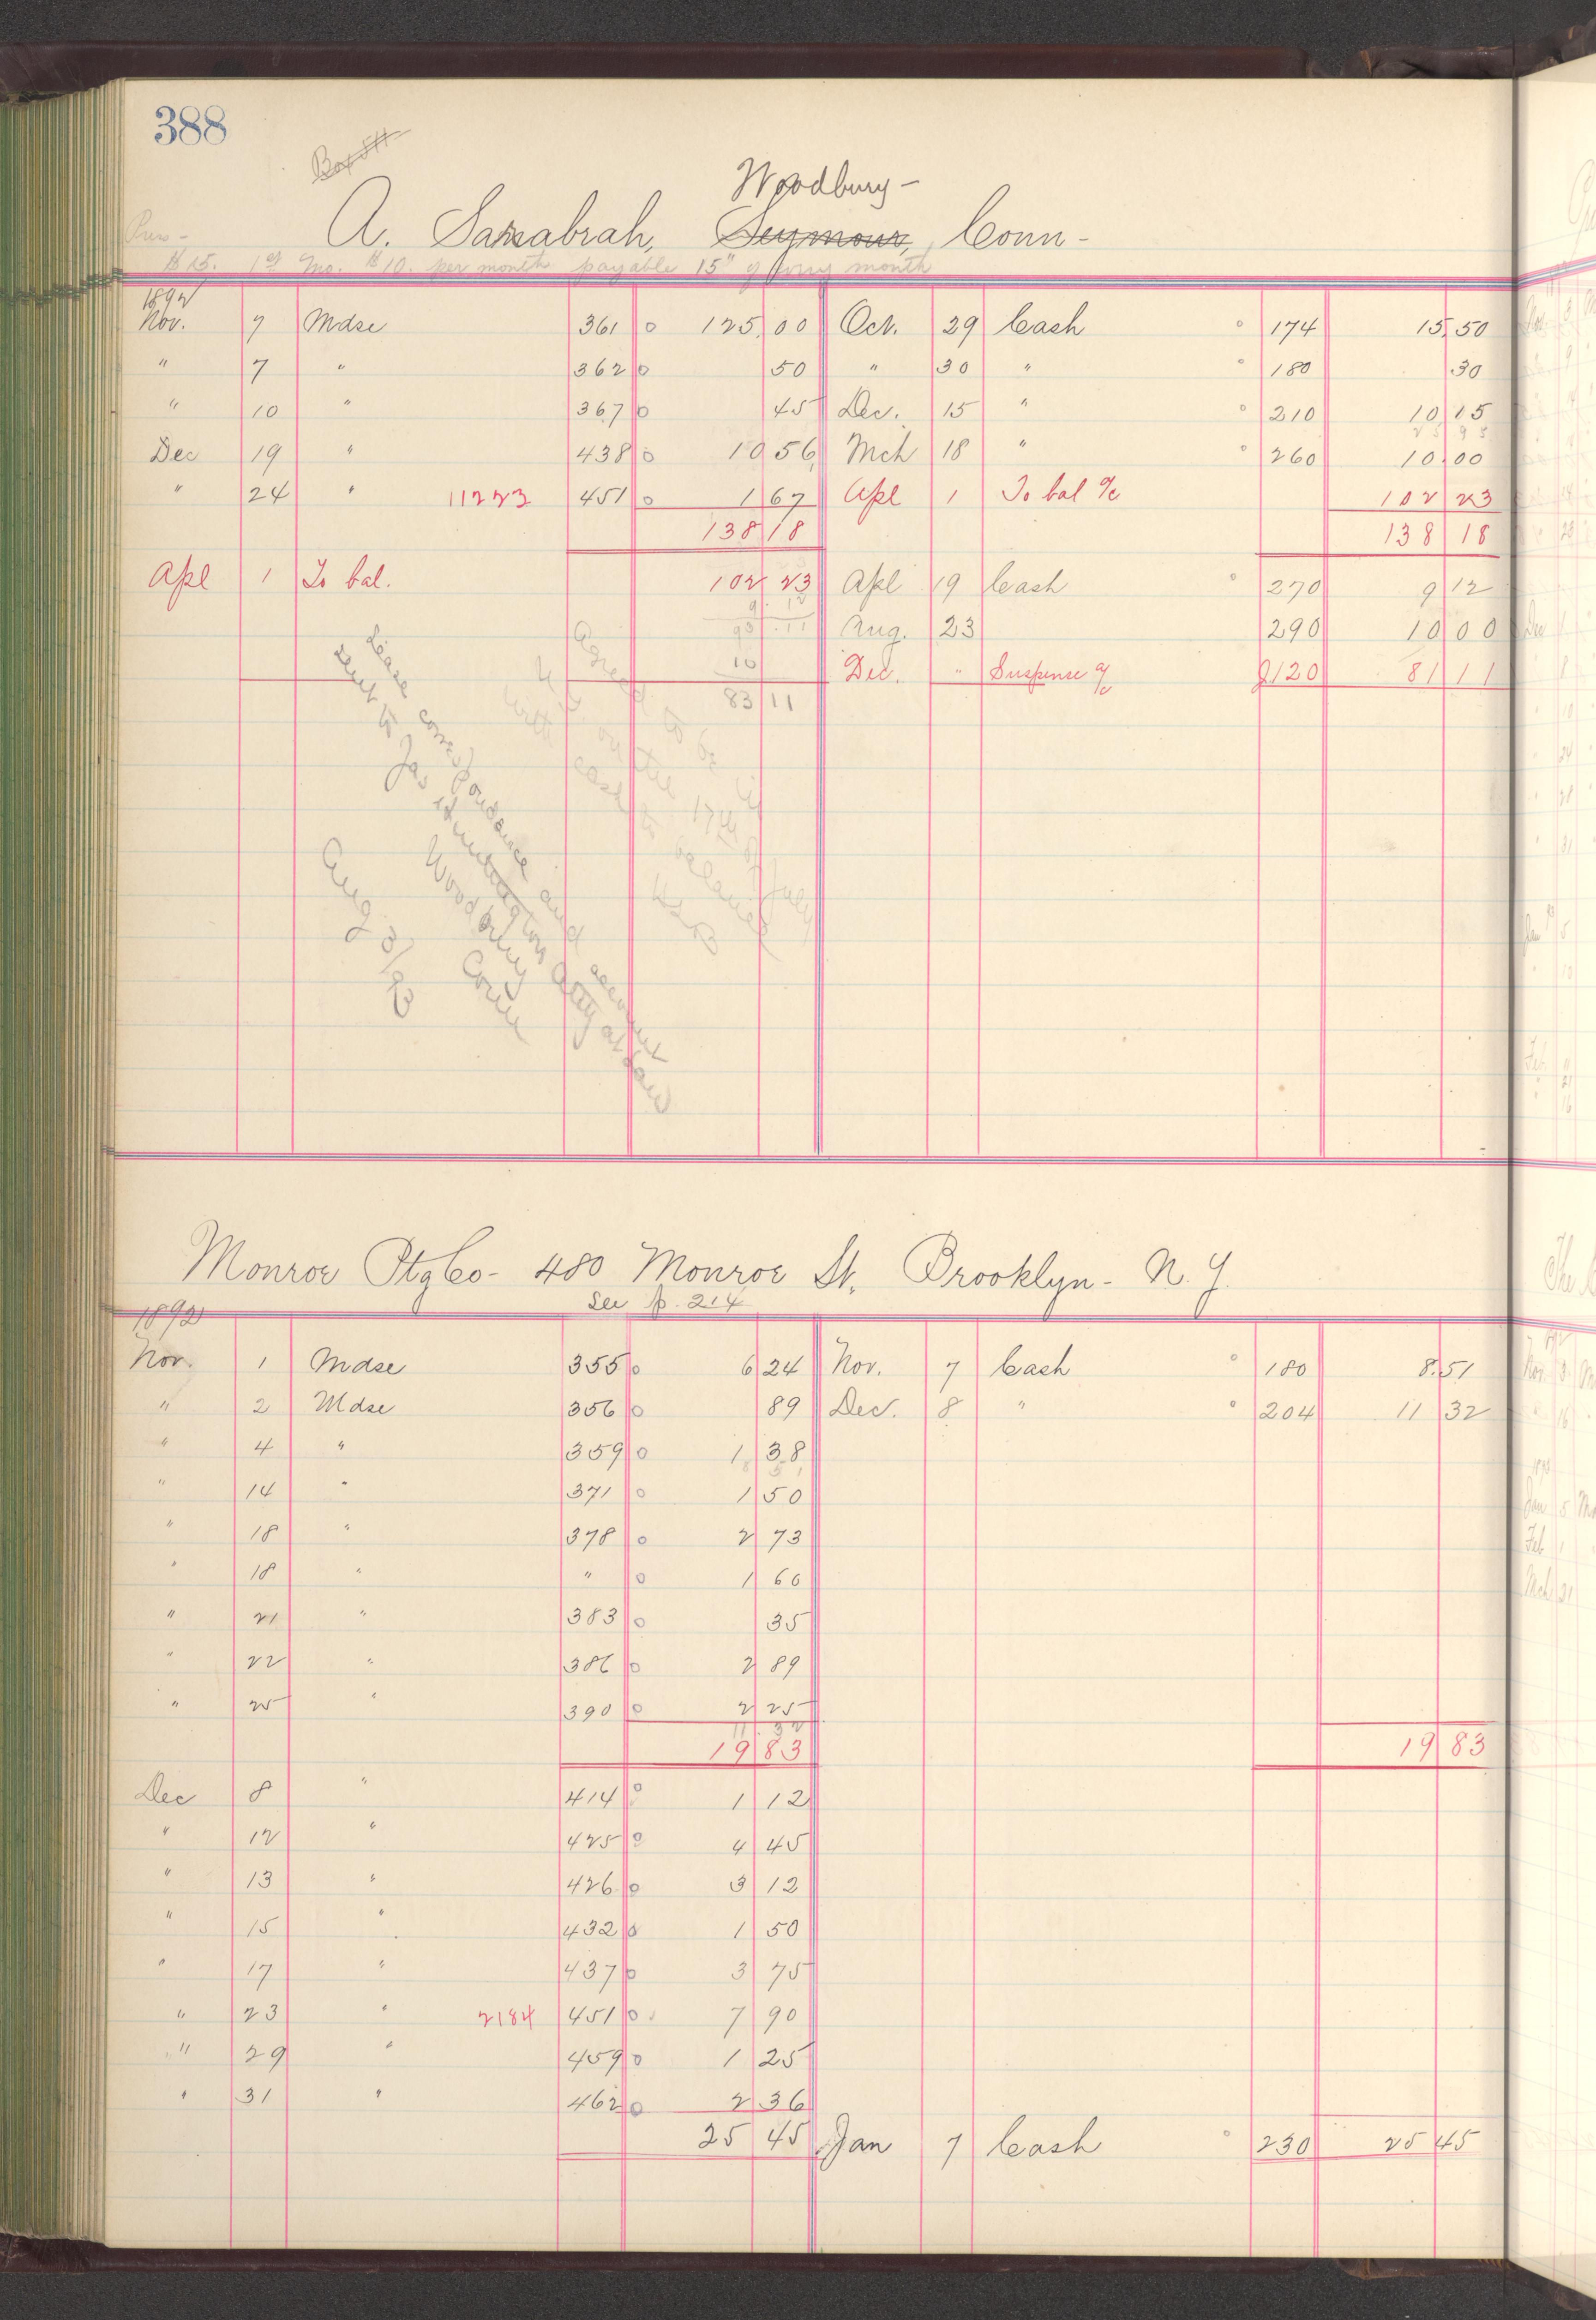 388
Box 511
Woodbury -
A. Sarrabrah, Seymour, Conn -
$15. 1st Mo. $10. per month payable 15" of every month
1892
Nov. 7 Mdse 361 0 125.00 Oct. 29 Cash 174 15.50
" 7 " 362 0 50 " 30 " 180 .30
" 10 " 367 0 45 Dec. 15 " 210 10 15
25 95
Dec 19 " 438 0 10 56 Mch 18 " 260 10.00
" 24 " 11223 451 0 1 67 Apl 1 To bal a/c 102 23
138 18 138 18
Apl 1 To bal. 102 23 Apl 19 Cash 270 9 12
9.12
93.11 Aug. 23 290 10 00
10 Dec. " Suspense a/c J120 81 11
83 11
Lease correspondence and account
sent to Jas Huntington Atty at Law
Woodbury Conn
Aug 3/93
Agreed to be in
N.Y. on the 17th of July
with cash to balance
Monroe Ptg Co - 480 Monroe St. Brooklyn - N.Y.
See p. 214
1892
Nov. 1 Mdse 355 0 6 24 Nov. 7 Cash 180 8.51
" 2 Mdse 356 0 89 Dec. 8 " 204 11 32
" 4 " 359 0 1 38
8 51
" 14 " 371 0 1 50
" 18 " 378 0 2 73
" 18 " " 0 1 60
" 21 " 383 0 35
" 22 " 386 0 2 89
" 25 " 390 0 2 25
11 32
19 83 19 83
Dec 8 " 414 0 1 12
" 12 " 425 0 4 45
" 13 " 426 0 3 12
" 15 " 432 0 1 50
" 17 " 437 0 3 75
" 23 " 2184 451 0 7 90
" 29 " 459 0 1 25
" 31 " 462 0 2 36
25 45 Jan 7 Cash 230 25 45